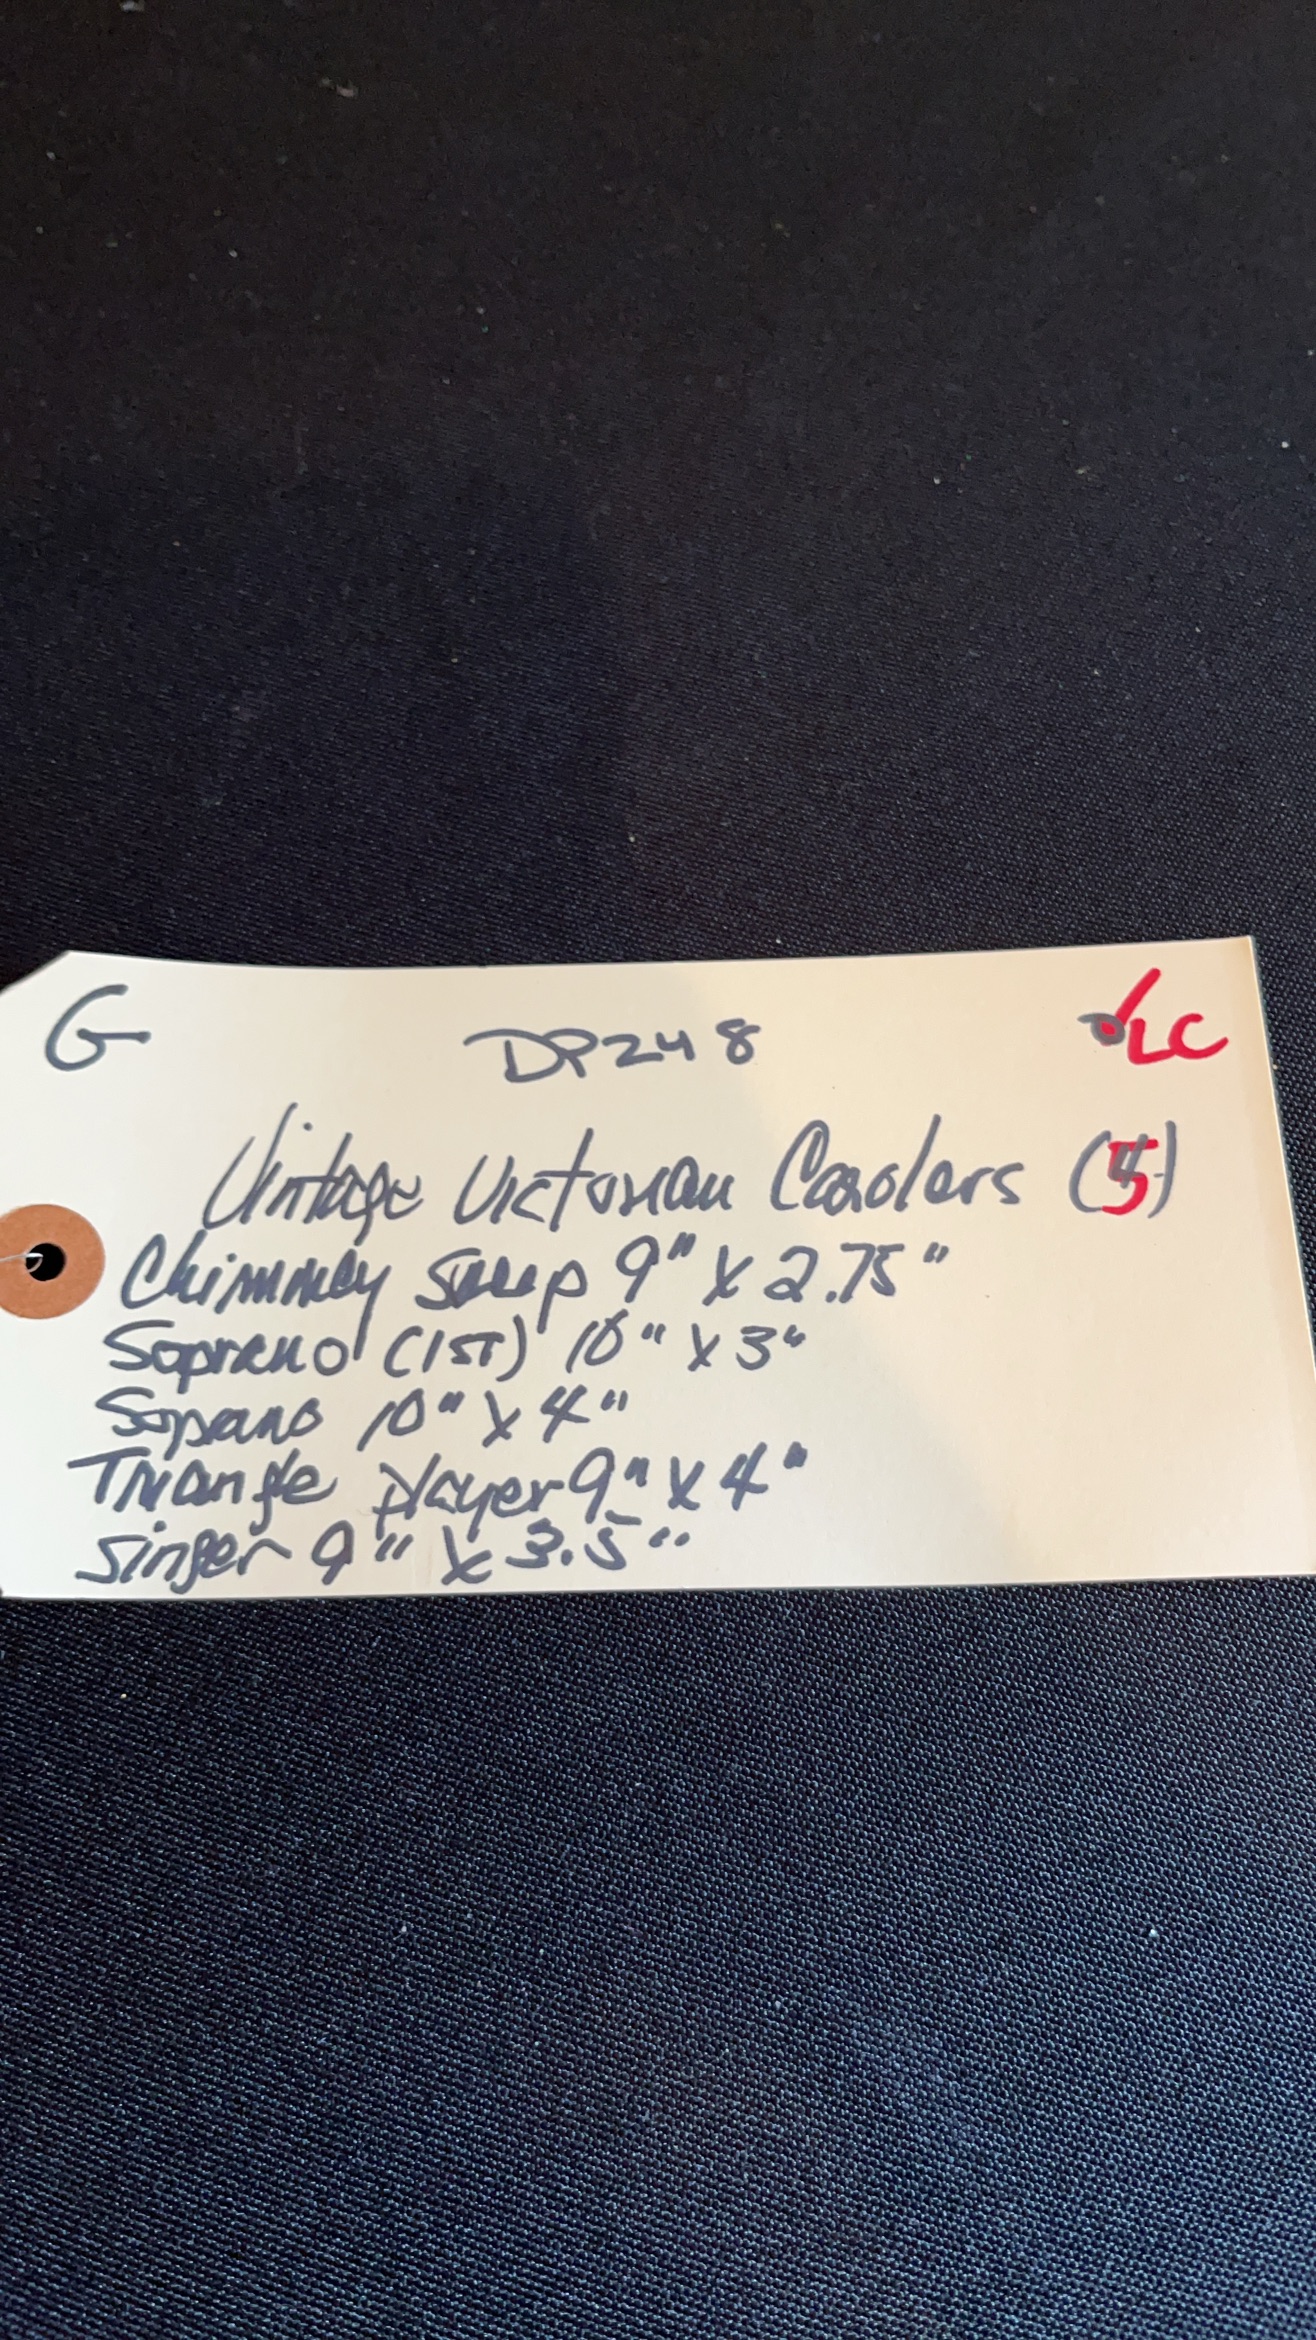 G DP248 LC
Vintage Victorian Carolers (5)
Chimmey Sweep 9" X 2.75"
Soprano (1ST) 10" X 3"
Soprano 10" X 4"
Triangle player 9" X 4"
Singer 9" X 3.5"